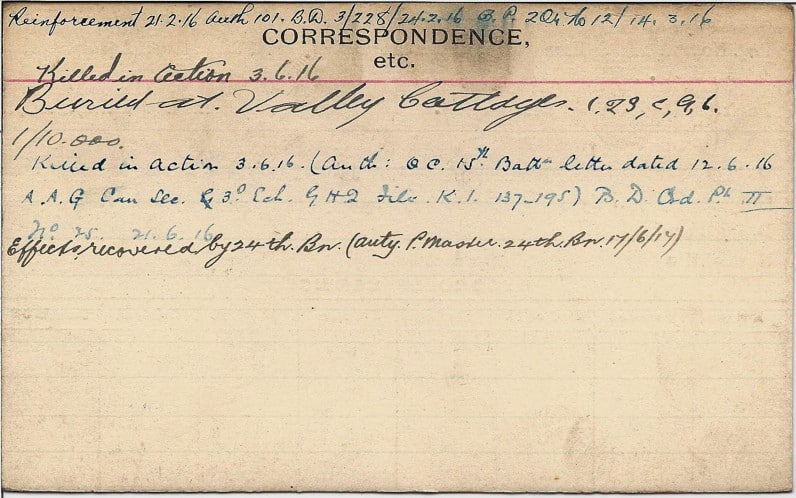 Reinforcement 21.2.16 Auth 101. B.D. 3/228/24.2.16 B.P. 2Qr to 12/14.3.16
CORRESPONDENCE,
etc.
Killed in action 3.6.16
Buried at Valley Cottages. 1.29, c, 9,6.
1/10.000.
Killed in action 3.6.16. (Auth: O C. 15th Battn letter dated 12.6.16
A.A.G Can Sec. 3º Ech. G H Q File K.1. 137-195) B.D. Ord. Pt II
No 25. 21.6.16
Effects recovered by 24th. Bn. (auty. P. Master. 24th. Bn. 17/6/17)